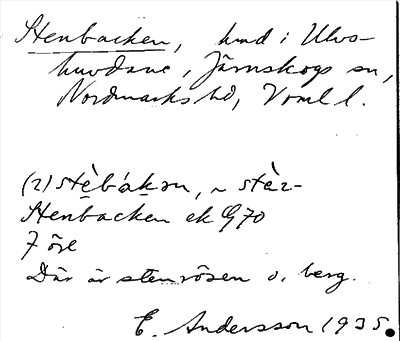 Stenbacken, hmd i Ulvs-
huvdane, Järnskogs sn,
Nordmarks hd, Vrml l.
(2) stèbákən, ~ stèz-
Stenbacken ek G70
7 öre
Där är stenrösen o. berg.
E. Andersson 1935.